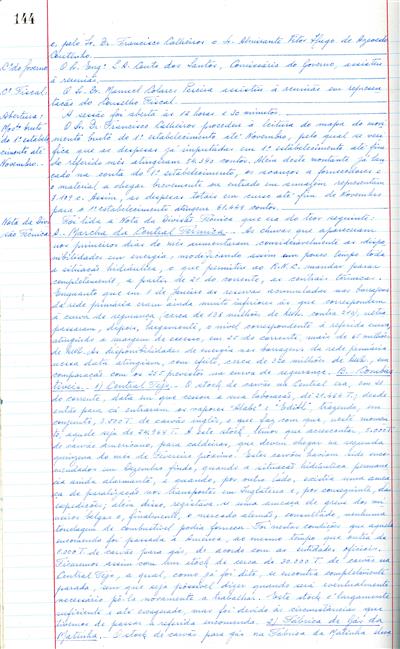 144
e, pelo Sr. Dr. Francisco Calheiros o Sr. Almirante Vitor Hugo de Azevedo
Coutinho.
Cº. do Governo
O Sr. Engº. L.A. Couto dos Santos, Comissário do Governo, assistiu
à reunião.
Cº. Fiscal.
O Sr. Dr. Manuel Colares Pereira assistiu à reunião em represen-
tação do Conselho Fiscal.
Abertura:
A sessão foi aberta às 12 horas e 30 minutos.
O Sr. Dr. Francisco Calheiros procedeu à leitura do mapa do movi-
mento gasto de 1º. estabelecimento até Novembro, pelo qual se veri-
1º estabele-
cimento até
Novembro.
fica que as despesas já imputadas em 1º. estabelecimento até fim
do referido mês atingiram 54.340 contos. Além deste montante já lan-
çado na conta do 1º. estabelecimento, os avanços a fornecedores e
o material a chegar brevemente ou entrado em armazem representam
contos. Assim, as despesas totais em curso até fim de Novembro
para o 1º estabelecimento atingem contos.
Nota da Divi-
são Técnica.
Foi lida a Nota da Divisão Técnica que era do teor seguinte:
A. Marcha da Central Térmica. As chuvas que apareceram
nos primeiros dias do mês aumentaram consideràvelmente as dispo-
nibilidades em energia, modificando assim em pouco tempo toda
a situação hidráulica, o que permitiu ao R.N.C. mandar parar
completamente, a partir de 20 do corrente, as centrais térmicas.
Enquanto em 1 de Janeiro as reservas acumuladas nas barragens
da rede primária eram ainda muito inferiores às que correspondem
à curva de segurança
passaram, depois, largamente, o nível correspondente à referida curva,
atingindo a margem de excesso, em 25 do corrente, mais de milhões
de kWh. As disponibilidades de energia nas barragens da rede primária
nessa data atingiam, com efeito, cerca de milhões de kWh, em
comparação com os previstos na curva de segurança. B. Combus-
tíveis. 1) Central Tejo. O stock de carvão na Central era, em 20
do corrente, data em que cessou a sua laboração, de T.; desde
então para cá entraram os vapores e "Edith", trazendo, em
conjunto, T. de carvão inglês, o que faz com que, neste momen-
to, aquele seja de T. A este stock, temos que acrescentar T.
de carvão americano, para caldeiras, que devem chegar na segunda
quinzena do mês de Fevereiro próximo. Estes carvões haviam sido enco-
mendados em Dezembro findo, quando a situação hidráulica permane-
cia ainda alarmante, e quando, por outro lado, existia uma amea-
ça de paralização nos transportes em Inglaterra e, por conseguinte, das
expedições; além disso, registara-se uma ameaça de greve do mi-
neiros belgas e, finalmente, o mercado alemão, consultado, nenhuma
tonelagem de combustível podia fornecer. Foi nestas condições que aquela
encomenda foi passada à América, ao mesmo tempo que outra de
T. de carvão para gás, de acordo com as entidades oficiais.
Ficaremos assim com um stock de cerca de 30.000 T. de carvão na
Central Tejo, a qual, como já foi dito, se encontra completamente
parada, sem que seja possível dizer quando será eventualmente
necessário pô-la novamente a trabalhar. Este stock é largamente
suficiente e até exagerado, mas foi devido às circunstâncias que
tivemos de passar a referida encomenda. 2) Fábrica de Gás da
Matinha. O stock de carvão para gás na Fábrica da Matinha